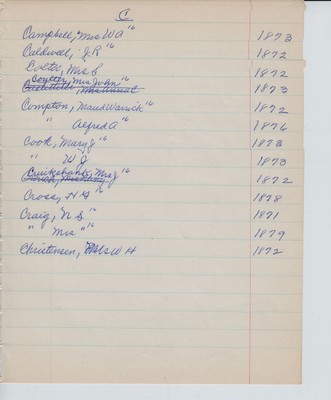 C
Campbell, Mrs WA " 1873
Caldwell, J.R " 1872
Colter, Mrs S 1872
Coulter, Mrs John " 1873
Compton, Maud Warwick " 1872
" Alfred A " 1876
Cook, Mary J " 1873
" W J 1873
Cruikshank, Mrs J " 1872
Cross, H G " 1878
Craig, N S " 1871
" Mrs " 1879
Christensen, W H 1872